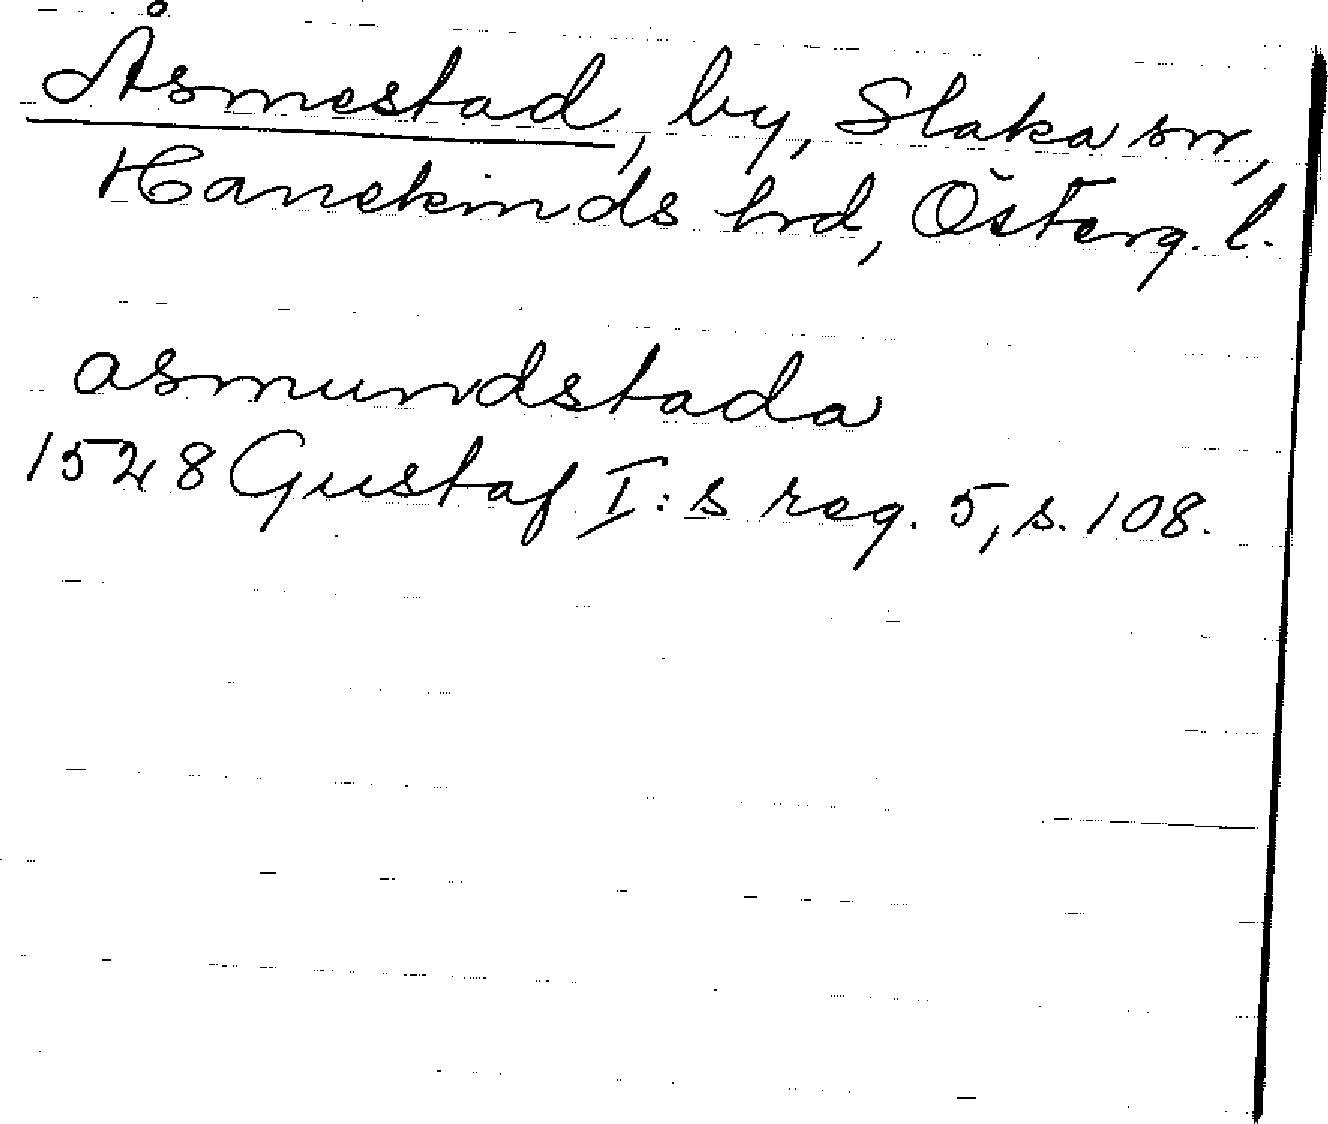 Åsmestad, by, Slaka sn,
Hanekinds hrd, Österg. l.
asmundstada
1528 Gustaf I:s reg. 5, s. 108.